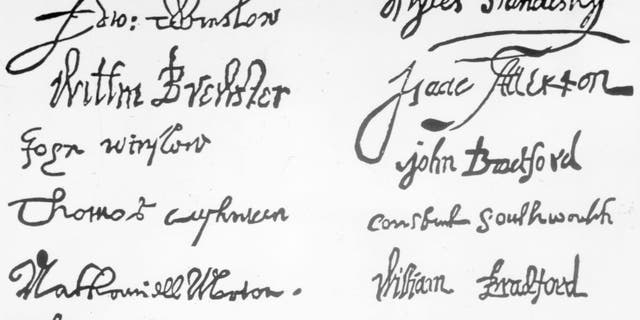 Edw: Winslow
Willm Brewster
John Winslow
Thomas Cushman
Nathaniell Morton.
Myles Standish
Isaac Allerton
john Bradford
Constant Southworth
William Bradford